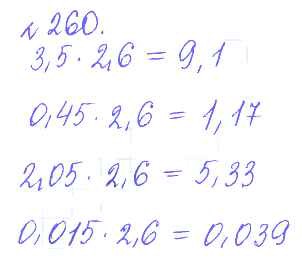 № 260.
3,5 · 2,6 = 9,1
0,45 · 2,6 = 1,17
2,05 · 2,6 = 5,33
0,015 · 2,6 = 0,039